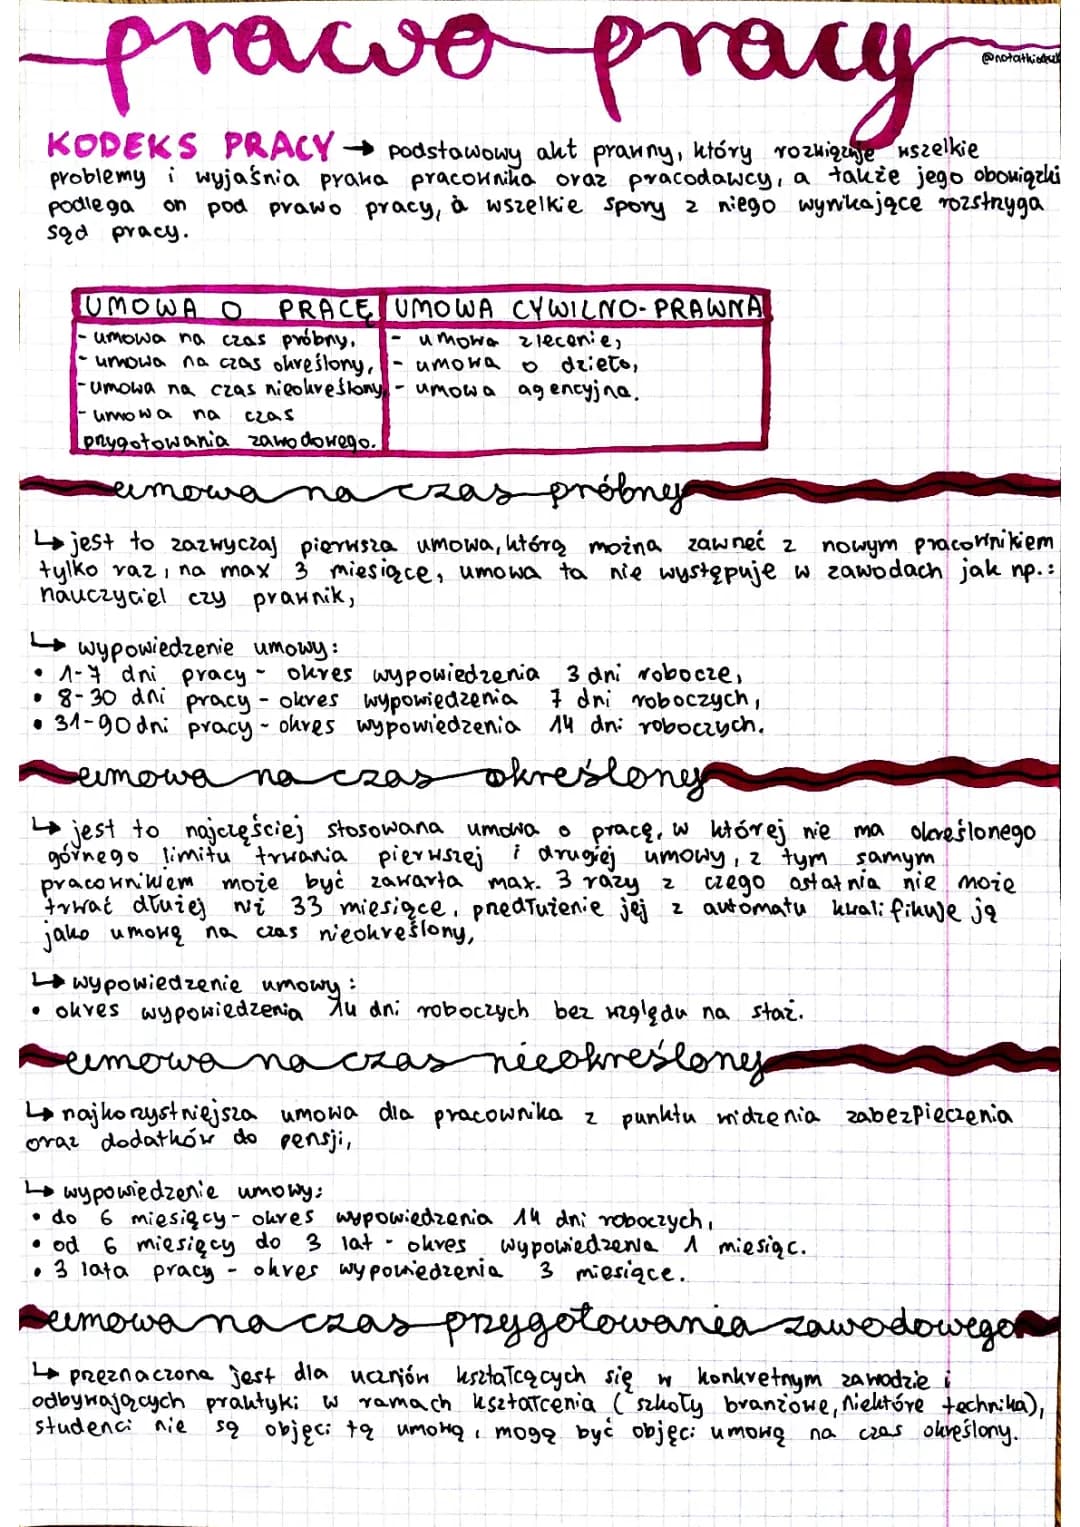 prawo pracy
KODEKS PRACY → podstawowy akt prawny, który rozwiązuje wszelkie
problemy i wyjaśnia prawa pracownika oraz pracodawcy, a także jego obowiązki
podlega on pod prawo pracy, a wszelkie spory z niego wynikające rozstrzyga
sąd pracy.
UMOWA O PRACĘ
- umowa na czas próbny,
- umowa na czas określony,
- umowa na czas nieokreślony,
- umowa na czas
przygotowania zawodowego.
UMOWA CYWILNO-PRAWNA
- umowa zlecenie,
- umowa o dzieło,
- umowa agencyjna.
umowa na czas próbny
↳ jest to zazwyczaj pierwsza umowa, którą można zawrzeć z nowym pracownikiem
tylko raz, na max 3 miesiące, umowa ta nie występuje w zawodach jak np.:
nauczyciel czy prawnik,
↳ wypowiedzenie umowy:
• 1-7 dni pracy - okres wypowiedzenia 3 dni robocze,
• 8-30 dni pracy - okres wypowiedzenia 7 dni roboczych,
• 31-90 dni pracy - okres wypowiedzenia 14 dni roboczych.
umowa na czas określony
↳ jest to najczęściej stosowana umowa o pracę, w której nie ma określonego
górnego limitu trwania pierwszej i drugiej umowy, z tym samym
pracownikiem może być zawarta max. 3 razy z czego ostatnia nie może
trwać dłużej niż 33 miesiące, przedłużenie jej z automatu kwalifikuje ją
jako umowę na czas nieokreślony,
↳ wypowiedzenie umowy:
• okres wypowiedzenia 14 dni roboczych bez względu na staż.
umowa na czas nieokreślony
↳ najkorzystniejsza umowa dla pracownika z punktu widzenia zabezpieczenia
oraz dodatków do pensji,
↳ wypowiedzenie umowy:
• do 6 miesięcy - okres wypowiedzenia 14 dni roboczych,
• od 6 miesięcy do 3 lat - okres wypowiedzenia 1 miesiąc.
• 3 lata pracy - okres wypowiedzenia 3 miesiące.
umowa na czas przygotowania zawodowego
↳ przeznaczona jest dla uczniów kształcących się w konkretnym zawodzie i
odbywających praktyki w ramach kształcenia (szkoły branżowe, niektóre technika),
studenci nie są objęci tą umową, mogą być objęci umową na czas określony.